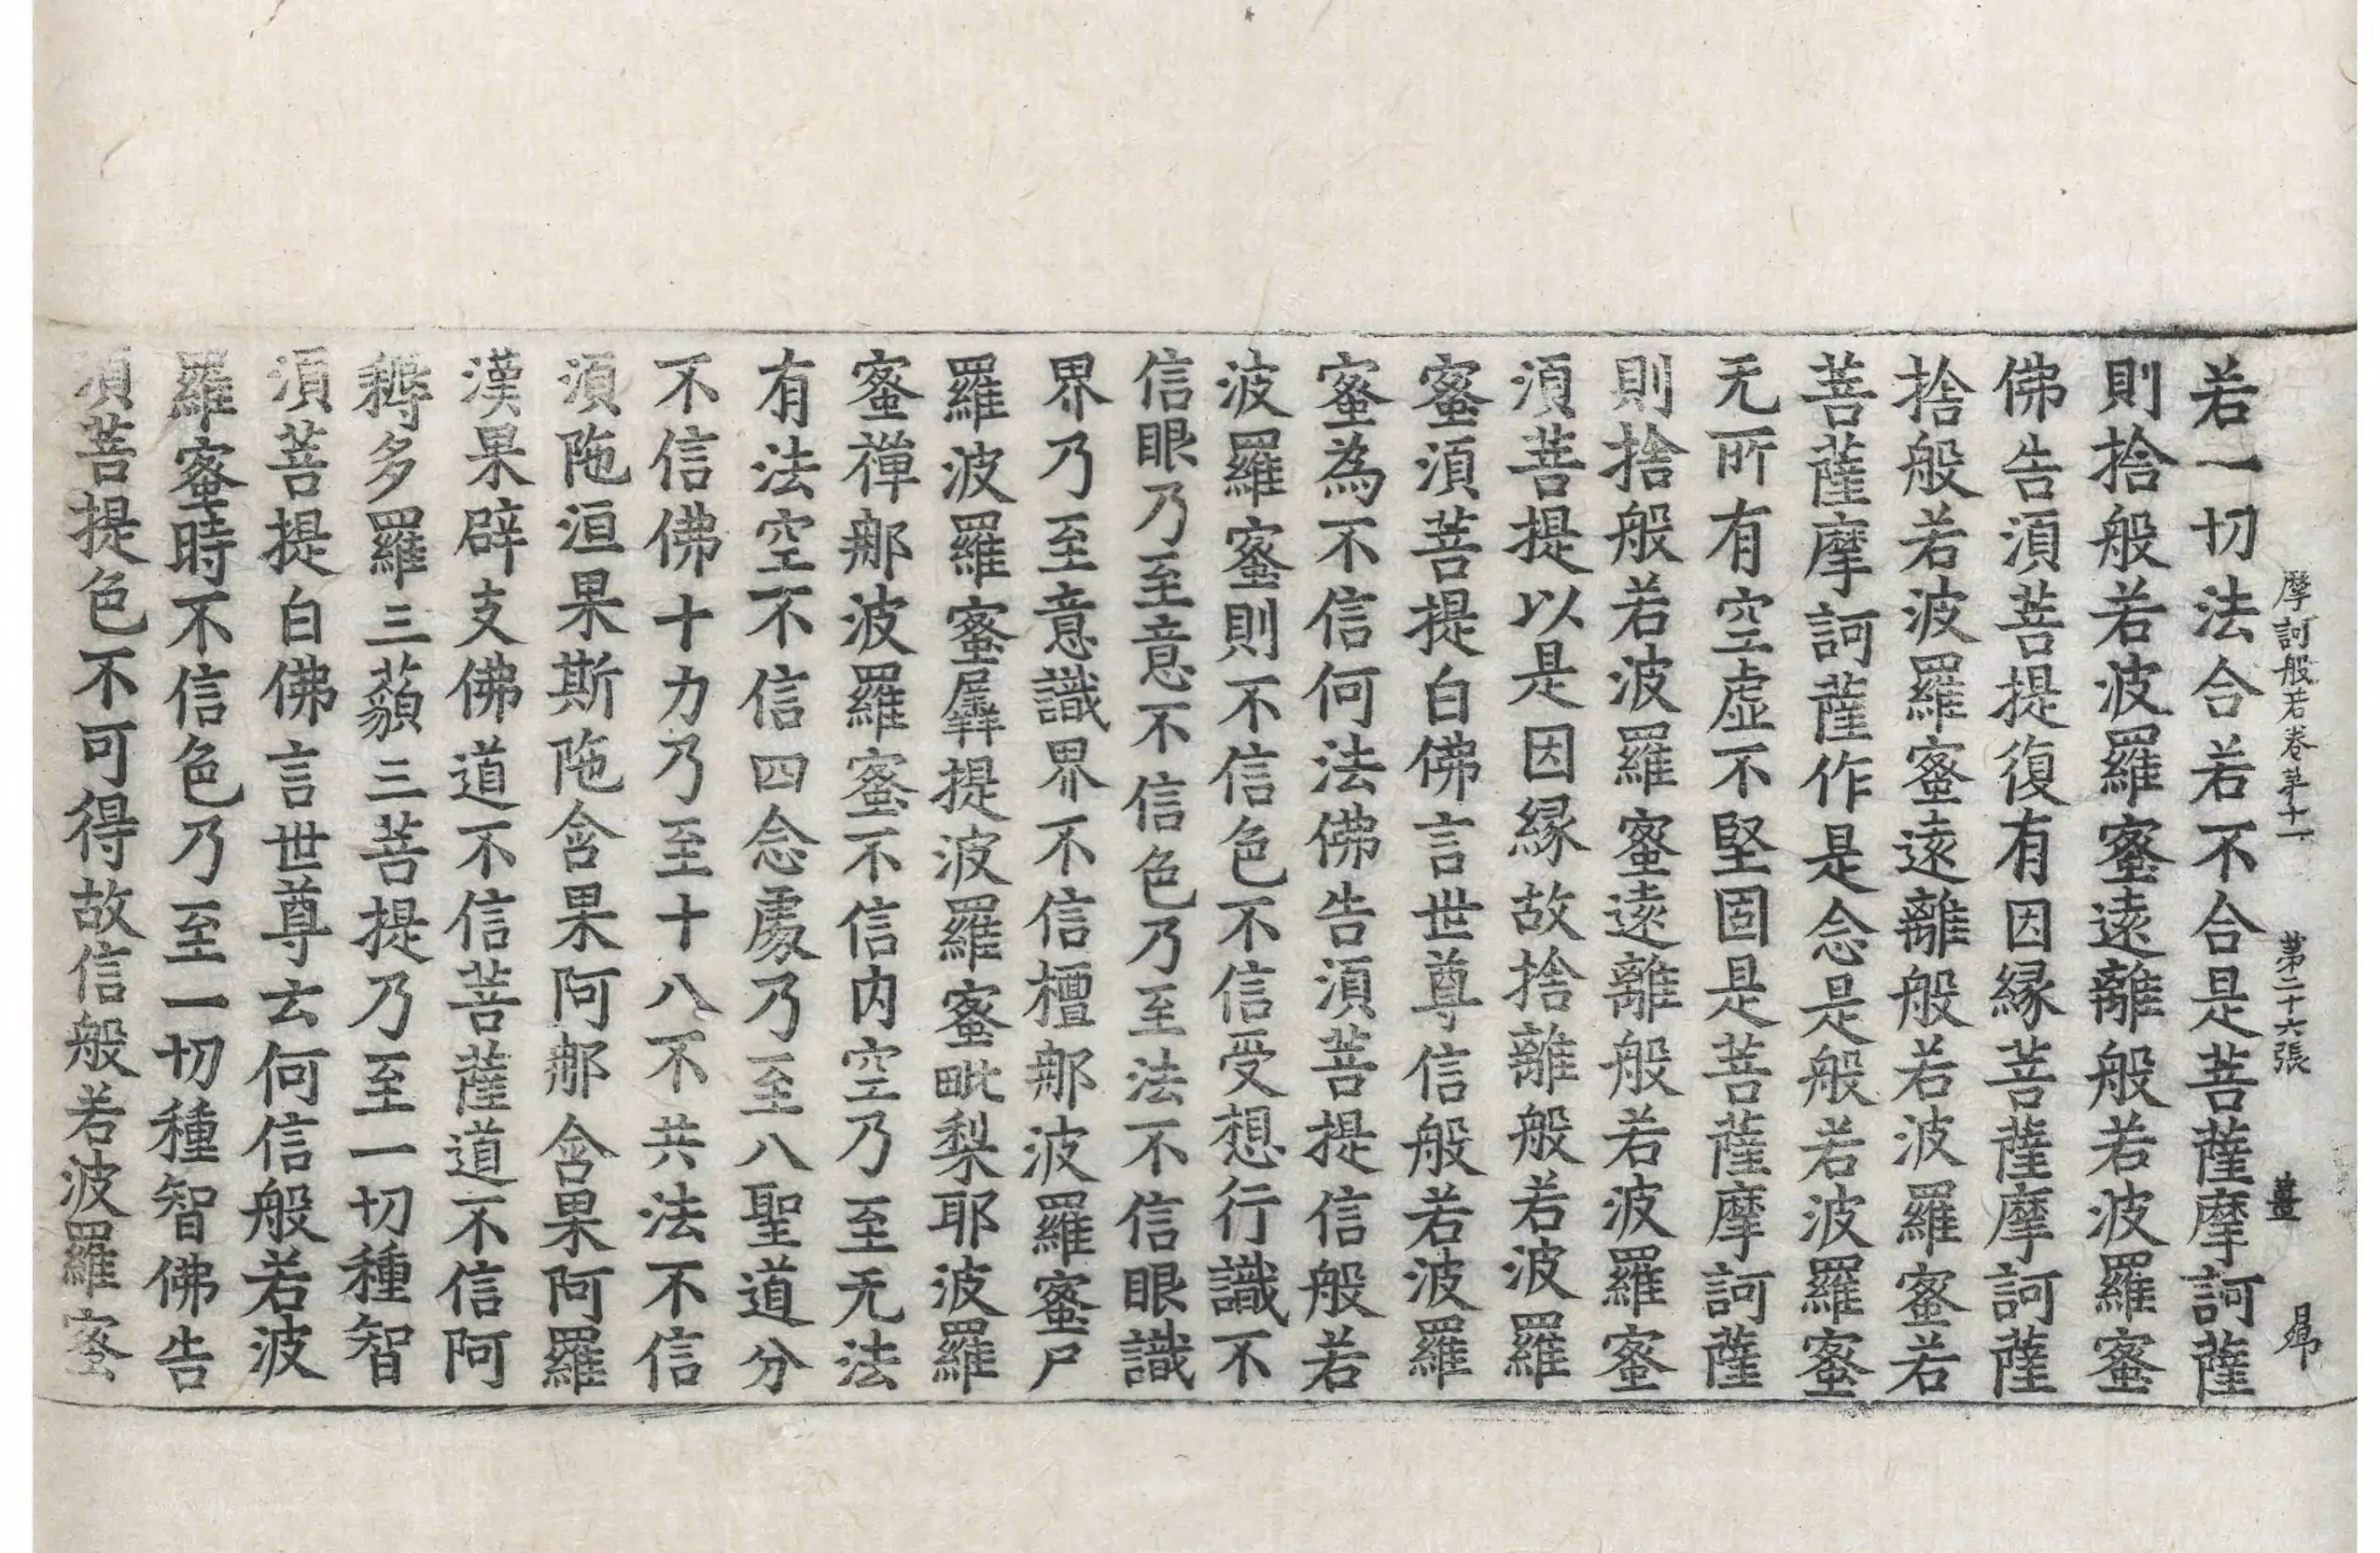 摩訶般若卷第十一　第二十六張　薑　𡷃
若一切法合若不合是菩薩摩訶薩
則捨般若波羅蜜遠離般若波羅蜜
佛告湏菩提復有因縁菩薩摩訶薩
捨般若波羅蜜遠離般若波羅蜜若
菩薩摩訶薩作是念是般若波羅蜜
无所有空虛不堅固是菩薩摩訶薩
則捨般若波羅蜜遠離般若波羅蜜
湏菩提以是因縁故捨離般若波羅
蜜湏菩提白佛言世尊信般若波羅
蜜為不信何法佛告湏菩提信般若
波羅蜜則不信色不信受想行識不
信眼乃至意不信色乃至法不信眼識
界乃至意識界不信檀那波羅蜜尸
羅波羅蜜羼提波羅蜜毗梨耶波羅
蜜禪那波羅蜜不信内空乃至无法
有法空不信四念處乃至八聖道分
不信佛十力乃至十八不共法不信
湏陁洹果斯陁含果阿那含果阿羅
漢果辟支佛道不信菩薩道不信阿
耨多羅三藐三菩提乃至一切種智
湏菩提白佛言世尊云何信般若波
羅蜜時不信色乃至一切種智佛告
湏菩提色不可得故信般若波羅蜜